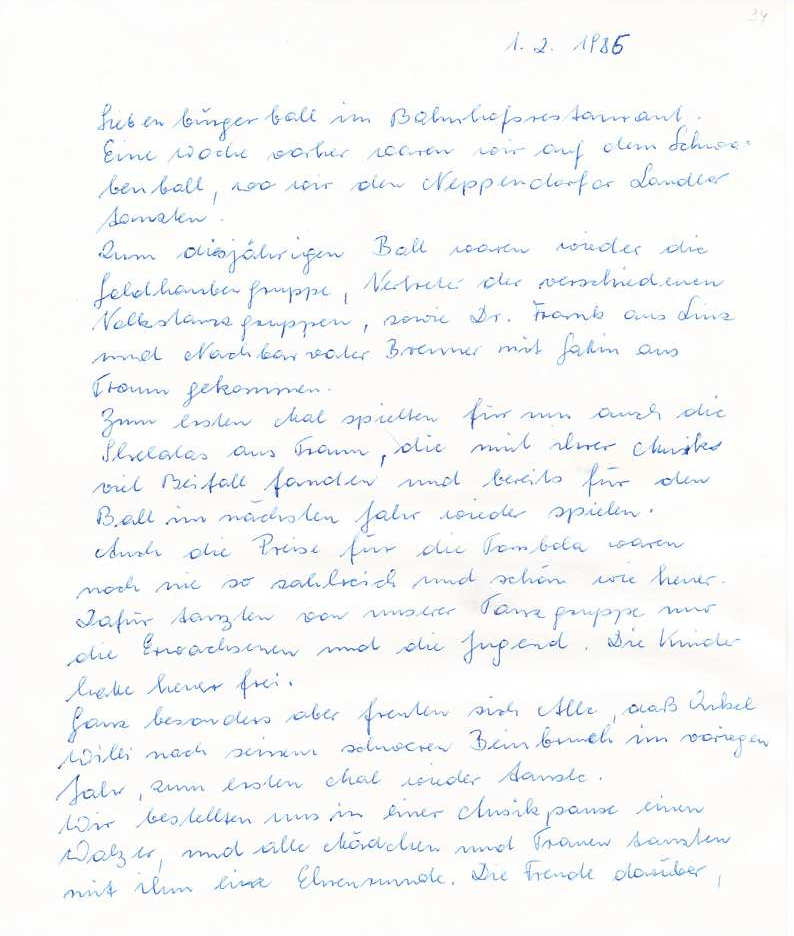 24
1. 2. 1986
Siebenbürgerball im Bahnhofsrestaurant.
Eine Woche vorher waren wir auf dem Schwa-
benball, wo wir den Neppendorfer Landler
tanzten.
Zum diesjährigen Ball waren wieder die
Goldhaubengruppe, Vertreter der verschiedenen
Volkstanzgruppen, sowie Dr. Frank aus Linz
und Nachbarvater Brenner mit Gattin aus
Traun gekommen.
Zum ersten Mal spielten für uns auch die
aus Traun, die mit ihrer Musik
viel Beifall fanden und bereits für den
Ball im nächsten Jahr wieder spielen.
Auch die Preise für die Tombola waren
noch nie so zahlreich und schön wie heuer.
Dafür tanzten von unserer Tanzgruppe nur
die Erwachsenen und die Jugend. Die Kinder
hatte heuer frei.
Ganz besonders aber freuten sich Alle, daß Onkel
Willi nach seinem schweren Beinbruch im vorigen
Jahr, zum ersten Mal wieder tanzte.
Wir bestellten uns in einer Musikpause einen
Walzer, und alle Mädchen und Frauen tanzten
mit ihm eine Ehrenrunde. Die Freude darüber,